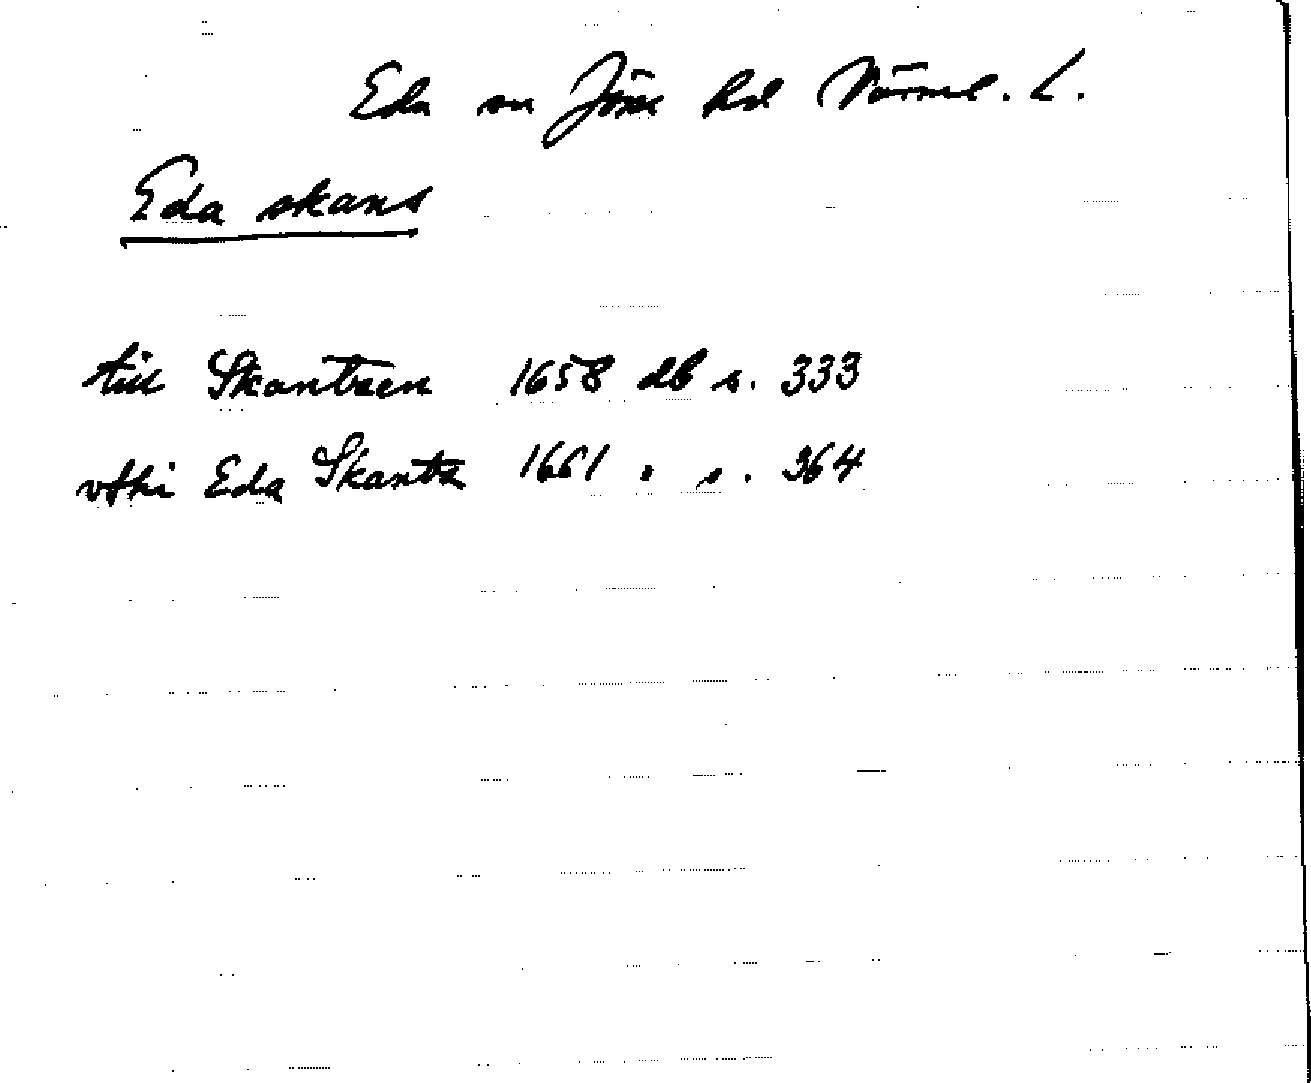 Eda sn Jösse hd Värml. L.
Eda skans
till Skantsen 1658 db s. 333
vthi Eda Skantz 1661 " s. 364